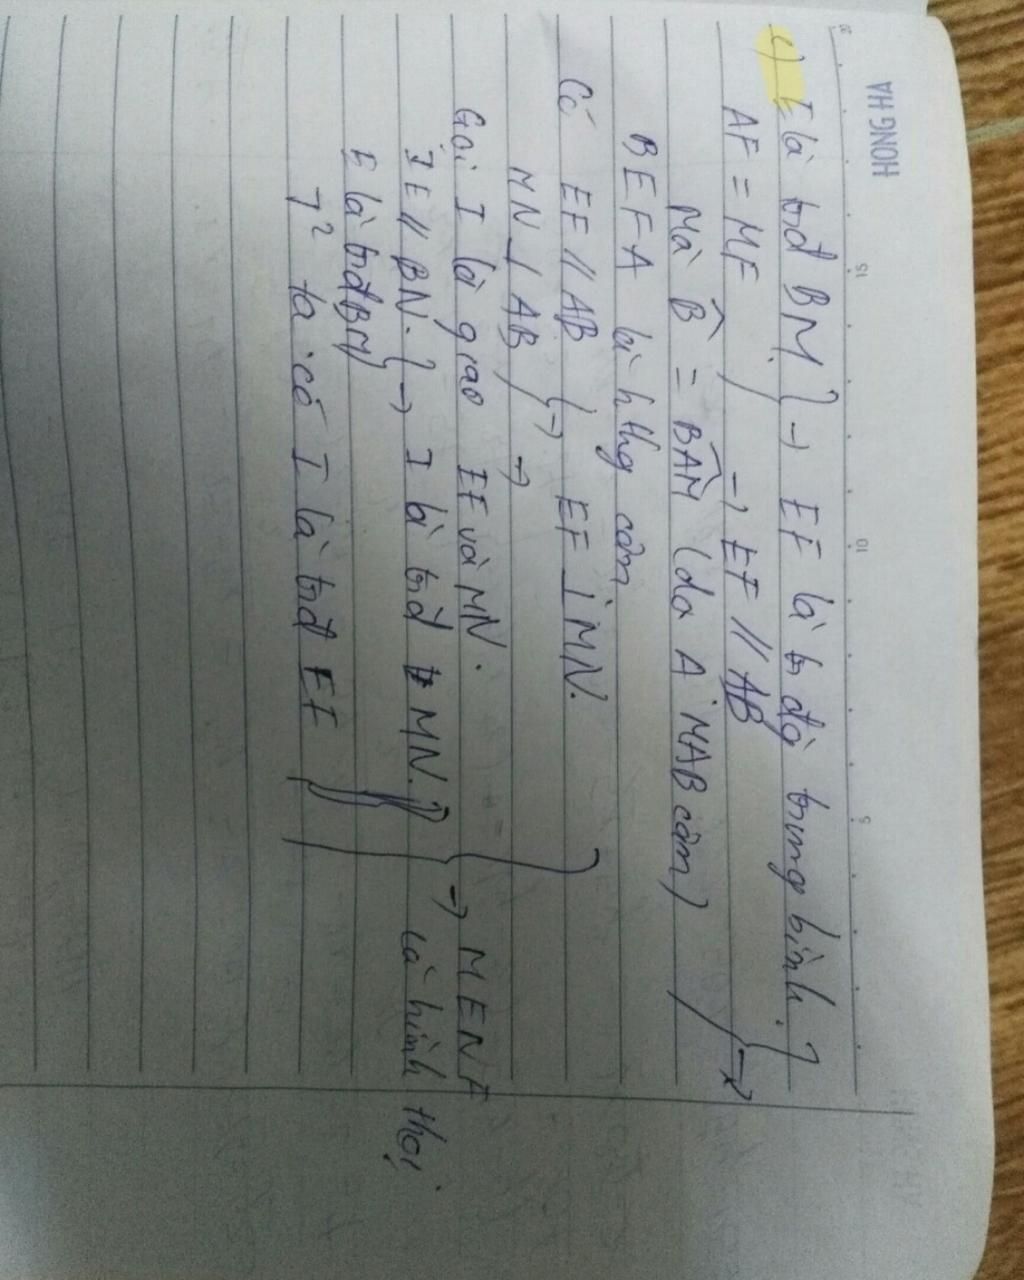 HONG HA
15 10 5
c) E là trđ BM } → EF là tr đg trung bình. }
AF = MF → EF // AB
Mà B̂ = BÂM (do Δ MAB cân) →
BEFA là h thg cân
Có EF // AB } → EF ⊥ MN.
MN ⊥ AB →
Gọi I là giao EF và MN.
IE // BN. } → I là trđ MN. } → MENF
E là trđ BM là hình thoi.
T² ta có I là trđ EF